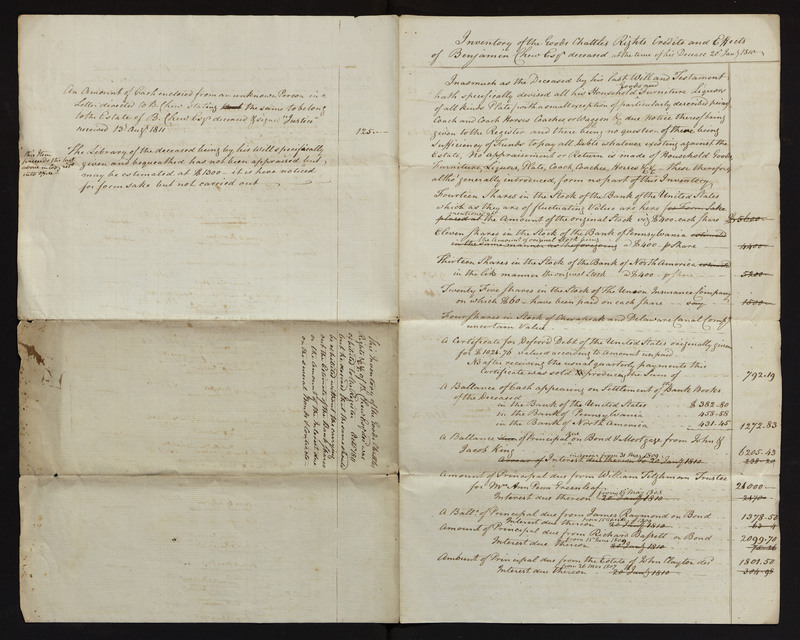 An Amount of Cash enclosed from an unknown Person in a
Letter directed to B. Chew stating the same to belong
to the Estate of B. Chew Esqr deceased & signed "Justice"
received 13 Augt 1811
125
The Library of the deceased being by his Will specifically
given and bequeathed has not been appraised but
may be estimated at $1300 - it is here noticed
for form sake but not carried out
This Inventory of the Goods Chattles
Inventory of the Goods Chattles Rights Credits and Effects
of Benjamin Chew Esqr deceased at the time of his Decease 20 Jany 1810
Inasmuch as the Deceased by his last Will and Testament
hath specifically devised all his Household Goods and Furniture Liquors
of all kinds Plate (with a small exception of particularly described pieces)
Coach and Coach Horses Coachee or Waggon by due Notice thereof being
given to the Register and there being no question of there being
Sufficiency of Funds to pay all Debts whatever existing against the
Estate, No appraisement or Return is made of Household Goods
Furniture, Liquors, Plate, Coach, Coachee, Horses &c. these therefore
altho' generally introduced, form no part of this Inventory.
Fourteen Shares in the Stock of the Bank of the United States
which as they are of fluctuating Value are here for Form Sake
placed at the Amount of the original Stock viz $400 each share $5600
Eleven shares in the Stock of the Bank of Pennsylvania estimated
in the same manner as the foregoing a $400 p share 4400
the Amount of original Stock being
Thirteen Shares in the Stock of the Bank of North America estimated
in the like manner the original Stock a $400 p share 5200
Twenty Five shares in the Stock of The Union Insurance Company
on which $60 have been paid on each share say 1500
Four Shares in Stock of Chesapeak and Delaware Canal Compy
uncertain Value
A Certificate for Deferd Debt of the United States originally given
for $1024.76 valued according to amount unpaid
NB after receiving the usual quarterly payments this
Certificate was sold & produced the Sum of 792.19
A Ballance of Cash appearing on Settlement of Bank Books
of the Deceased
in the Bank of the United States $382.80
in the Bank of Pennsylvania 458.58
in the Bank of North America 431.45 1272.83
A Ballance of Principal due on Bond & Mortgage from John &
Jacob King 6205.43
Amount of Interest due thereon to 20 Jany 1810
Amount of Principal due from William Tilghman Trustee
for Mrs Ann Penn Greenleaf 24000
Interest due thereon from 15 May 1808 20 Jany 1810
A Balle of Principal due from James Raymond on Bond 1378.50
Interest due thereon 20 Jany 1810
Amount of Principal due from Richard Bassett on Bond 2099.70
Interest due thereon 20 Jany 1810
Amount of Principal due from the Estate of John Clayton decd 1801.50
Interest due thereon 20 Jany 1810 204.98